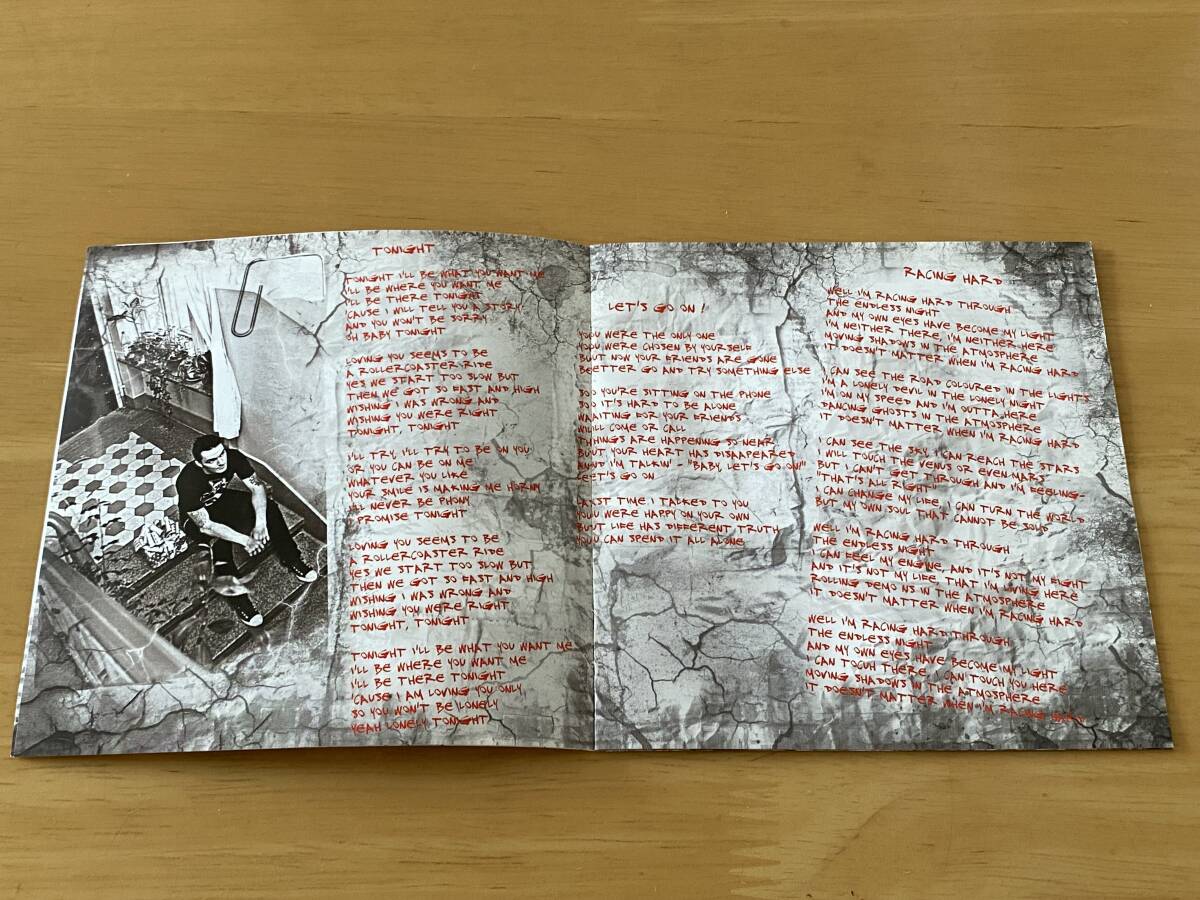 TONIGHT
TONIGHT I'LL BE WHAT YOU WANT ME
I'LL BE WHERE YOU WANT ME
I'LL BE THERE TONIGHT
'CAUSE I WILL TELL YOU A STORY
AND YOU WON'T BE SORRY
OH BABY TONIGHT
LOVING YOU SEEMS TO BE
A ROLLERCOASTER RIDE
YES WE START TOO SLOW BUT
THEN WE GOT SO FAST AND HIGH
WISHING I WAS WRONG AND
WISHING YOU WERE RIGHT
TONIGHT, TONIGHT
I'LL TRY, I'LL TRY TO BE ON YOU
OR YOU CAN BE ON ME
WHATEVER YOU LIKE
YOUR SMILE IS MAKING ME HORNY
I'LL NEVER BE PHONY
I PROMISE TONIGHT
LOVING YOU SEEMS TO BE
A ROLLERCOASTER RIDE
YES WE START TOO SLOW BUT
THEN WE GOT SO FAST AND HIGH
WISHING I WAS WRONG AND
WISHING YOU WERE RIGHT
TONIGHT, TONIGHT
TONIGHT I'LL BE WHAT YOU WANT ME
I'LL BE WHERE YOU WANT ME
I'LL BE THERE TONIGHT
'CAUSE I AM LOVING YOU ONLY
SO YOU WON'T BE LONELY
YEAH LONELY TONIGHT
LET'S GO ON !
YOU WERE THE ONLY ONE
YOU WERE CHOSEN BY YOURSELF
BUUT NOW YOUR FRIENDS ARE GONE
BEETTER GO AND TRY SOMETHING ELSE
SOO YOU'RE SITTING ON THE PHONE
IT'S HARD TO BE ALONE
WAAITING FOR YOUR FRIENDS
WIILL COME OR CALL
THHINGS ARE HAPPENING SO NEAR
BUUT YOUR HEART HAS DISAAPEARED
AANND I'M TALKIN' - "BABY, LET'S GO ON!"
LEET'S GO ON
LAAST TIME I TALKED TO YOU
YOUU WERE HAPPY ON YOUR OWN
BUUT LIFE HAS DIFFERENT TRUTH
YOUU CAN SPEND IT ALL ALONE
RACING HARD
WELL I'M RACING HARD THROUGH
THE ENDLESS NIGHT
AND MY OWN EYES HAVE BECOME MY LIGHT
I'M NEITHER THERE, I'M NEITHER HERE
MOVING SHADOWS IN THE ATMOSPHERE
IT DOESN'T MATTER WHEN I'M RACING HARD
I CAN SEE THE ROAD COLOURED IN THE LIGHTS
I'M A LONELY DEVIL IN THE LONELY NIGHT
I'M ON MY SPEED AND I'M OUTTA HERE
DANCING GHOSTS IN THE ATMOSPHERE
IT DOESN'T MATTER WHEN I'M RACING HARD
I CAN SEE THE SKY, I CAN REACH THE STARS
WILL TOUCH THE VENUS OR EVEN MARS
BUT I CAN'T GET THROUGH AND I'M FEELING-
THAT'S ALL RIGHT
I CAN CHANGE MY LIFE, I CAN TURN THE WORLD
BUT MY OWN SOUL THAT CANNOT BE SOLD
WELL I'M RACING HARD THROUGH
THE ENDLESS NIGHT
I CAN FEEL MY ENGINE, AND IT'S NOT MY FIGHT
AND IT'S NOT MY LIFE, THAT I'M LIVING HERE
ROLLING DEMO NS IN THE ATMOSPHERE
IT DOESN'T MATTER WHEN I'M RACING HARD
WELL I'M RACING HARD THROUGH
THE ENDLESS NIGHT
AND MY OWN EYES HAVE BECOME MY LIGHT
I CAN TOCUH THERE, I CAN TOUCH YOU HERE
MOVING SHADOWS IN THE ATMOSPHERE
IT DOESN'T MATTER WHEN I'M RACING HARD